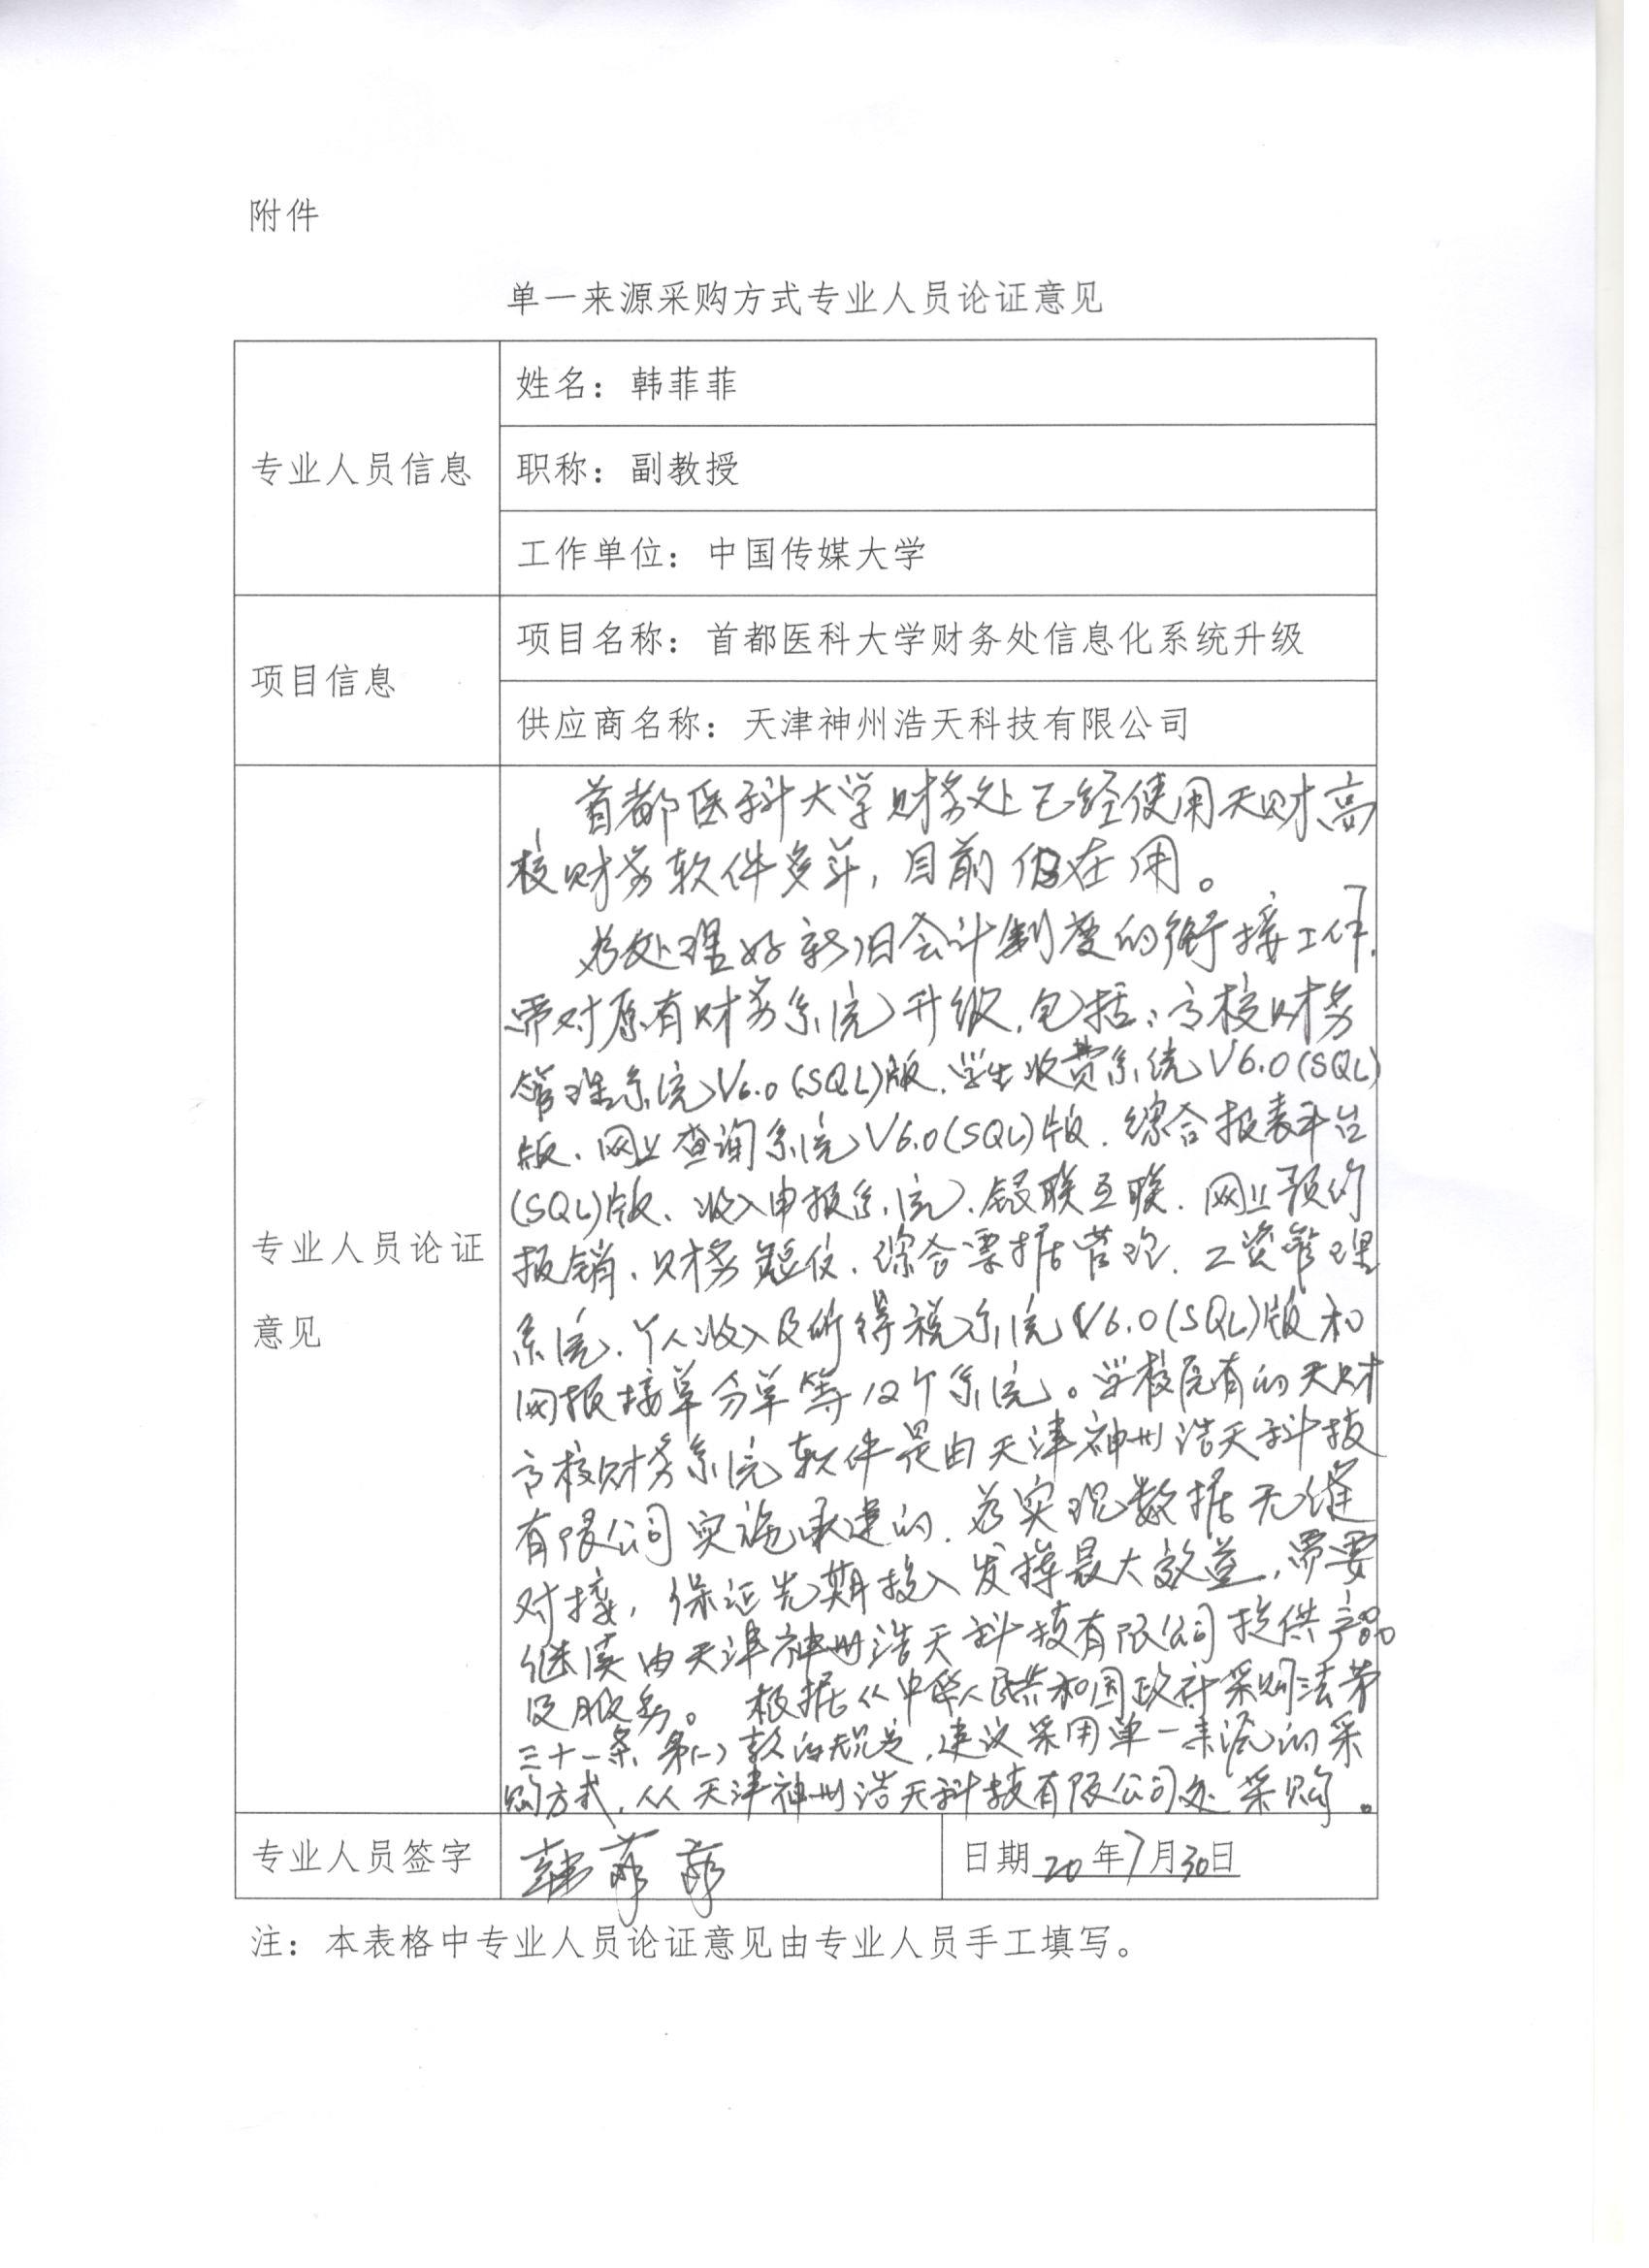 附件
单一来源采购方式专业人员论证意见
专业人员信息
姓名：韩菲菲
职称：副教授
工作单位：中国传媒大学
项目信息
项目名称：首都医科大学财务处信息化系统升级
供应商名称：天津神州浩天科技有限公司
专业人员论证
意见
首都医科大学财务处已经使用天财高
校财务软件多年，目前仍在用。
为处理好新旧会计制度的衔接工作，
需对原有财务系统升级，包括：高校财务
管理系统V6.0(SQL)版、学生收费系统V6.0(SQL)
版、网上查询系统V6.0(SQL)版、综合报表平台
(SQL)版、收入申报系统、银联互联、网上预约
报销、财务短信、综合票据管理、工资管理
系统、个人收入及所得税系统V6.0(SQL)版和
网报接单分单等12个系统。学校原有的天财
高校财务系统软件是由天津神州浩天科技
有限公司实施承建的，为实现数据无缝
对接，保证先期投入发挥最大效益，需要
继续由天津神州浩天科技有限公司提供产品
及服务。根据《中华人民共和国政府采购法第
三十一条第(一)款的规定，建议采用单一来源的采
购方式，从天津神州浩天科技有限公司处采购。
专业人员签字
韩菲菲
日期 20年7月30日
注：本表格中专业人员论证意见由专业人员手工填写。